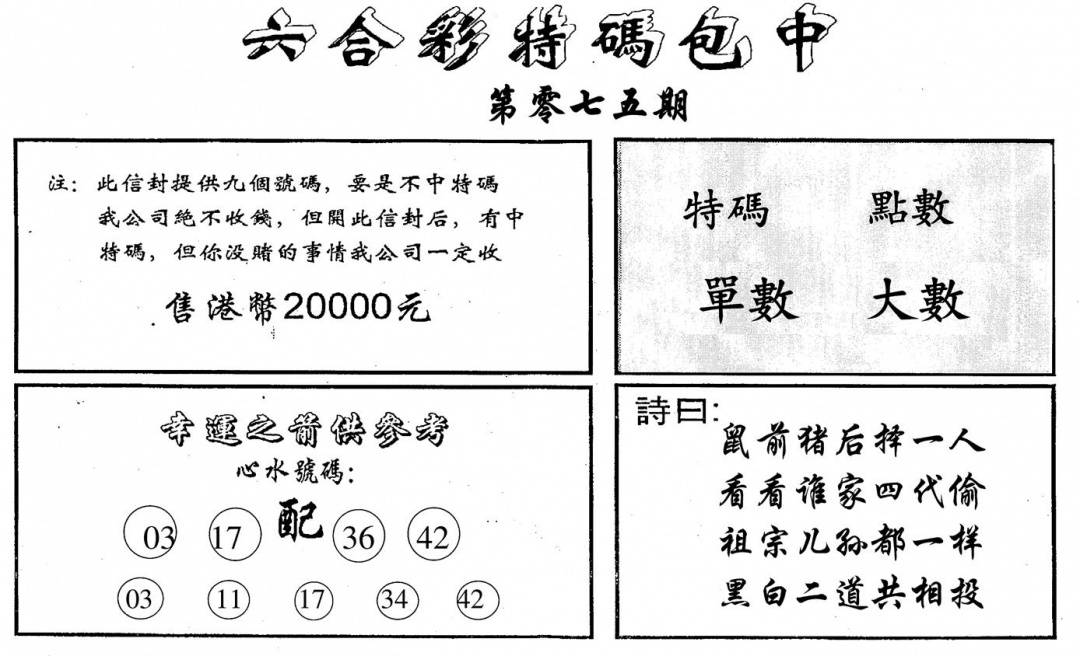 六合彩特碼包中
第零七五期
注：此信封提供九個號碼，要是不中特碼
我公司絕不收錢，但開此信封后，有中
特碼，但你没賭的事情我公司一定收
售港幣20000元
特碼 點數
單數 大數
幸運之箭供參考
心水號碼：
03 17 配 36 42
03 11 17 34 42
詩曰：
鼠前猪后择一人
看看谁家四代偷
祖宗儿孙都一样
黑白二道共相投